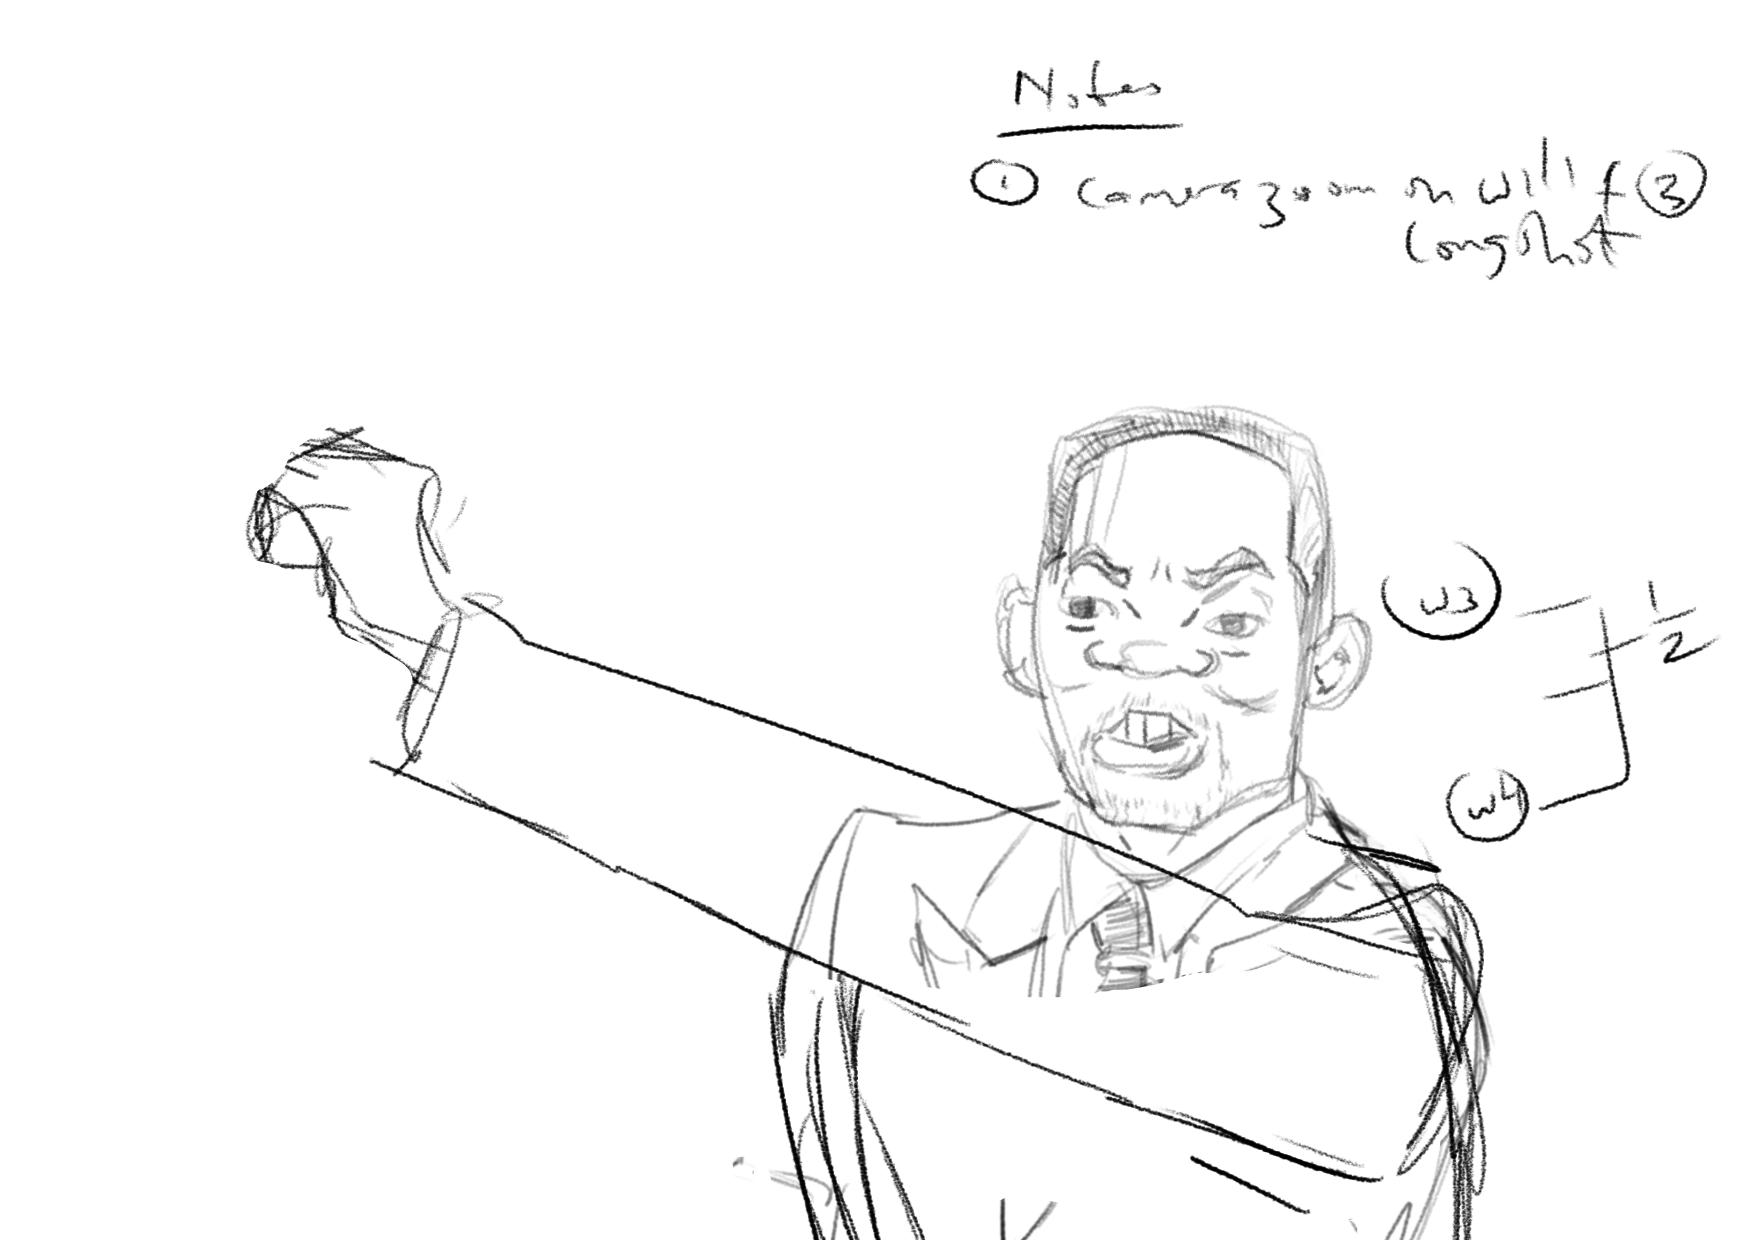 Notes
① Camera zoom on will f ③
Longshot
W3
1/2
W4